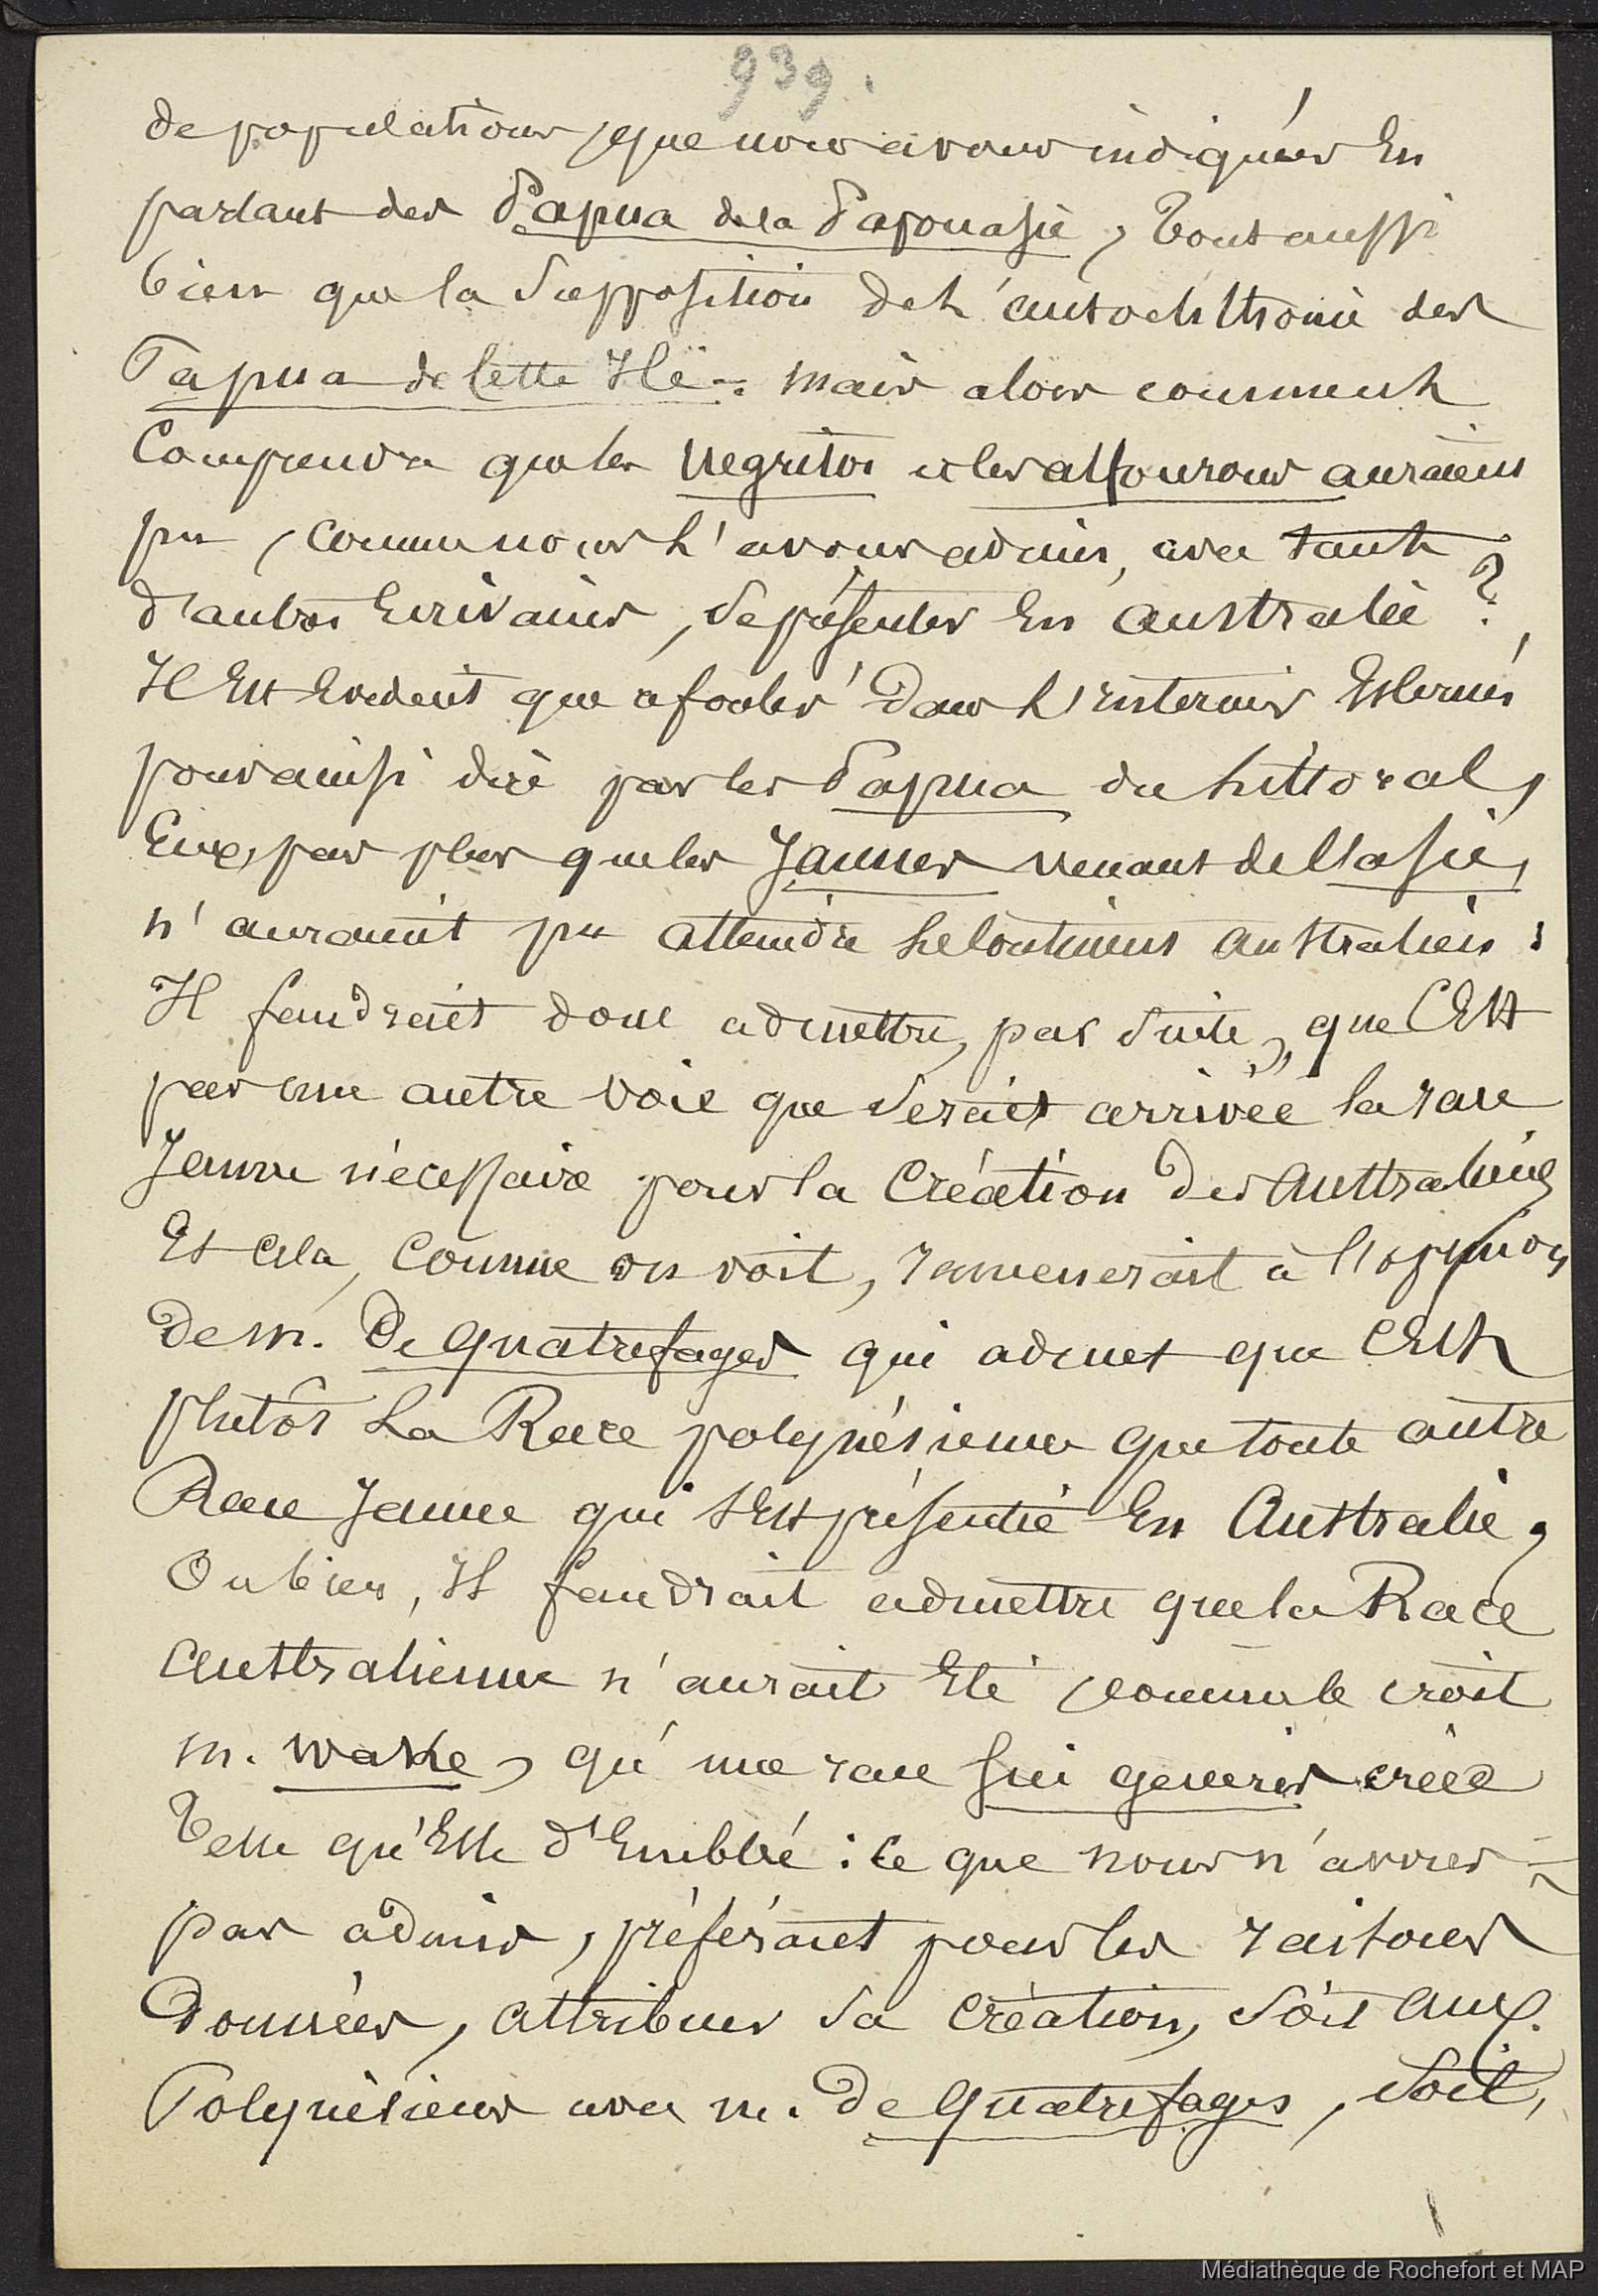 939.
de populations, que nous avons indiquées En
parlant des Papua de la Papouasie, Tout aussi
bien que la Supposition de L'autochthonie des
Papua de Cette Ile. mais alors comment
Comprendre que les Negritos et les alfourous auraient
pu, comme nous L'avons admis, avec tant
d'autres Ecrivains, se présenter En australie ?
Il Est Evident que refoulés Dans L'interieur
pour ainsi dire par les Papua du Littoral,
Eux, pas plus que les Jaunes venant de l'asie,
n'auraient pu atteindre Le Continent australien :
Il faudrait donc admettre, par suite, que C'Est
par une autre voie que Serait arrivée la race
Jaune nécessaire pour la Création des Australiens
Et Cela, Comme on voit, ramenerait à l'opinion
De m. De Quatrefages qui admet que C'Est
plutôt La Race polynésienne que toute autre
Race Jaune qui s'Est présentée En Australie,
Ou bien, Il faudrait admettre que la Race
Australienne n'aurait Eté, comme le croit
m. Wake, qu'une race Sui generis créée
Telle qu'Elle d'Emblée : Ce que nous n'avons
pas admis, préférant pour les raisons
Données, attribuer Sa Création, Soit aux
Polynésiens avec m. De Quatrefages, Soit,
Médiathèque de Rochefort et MAP